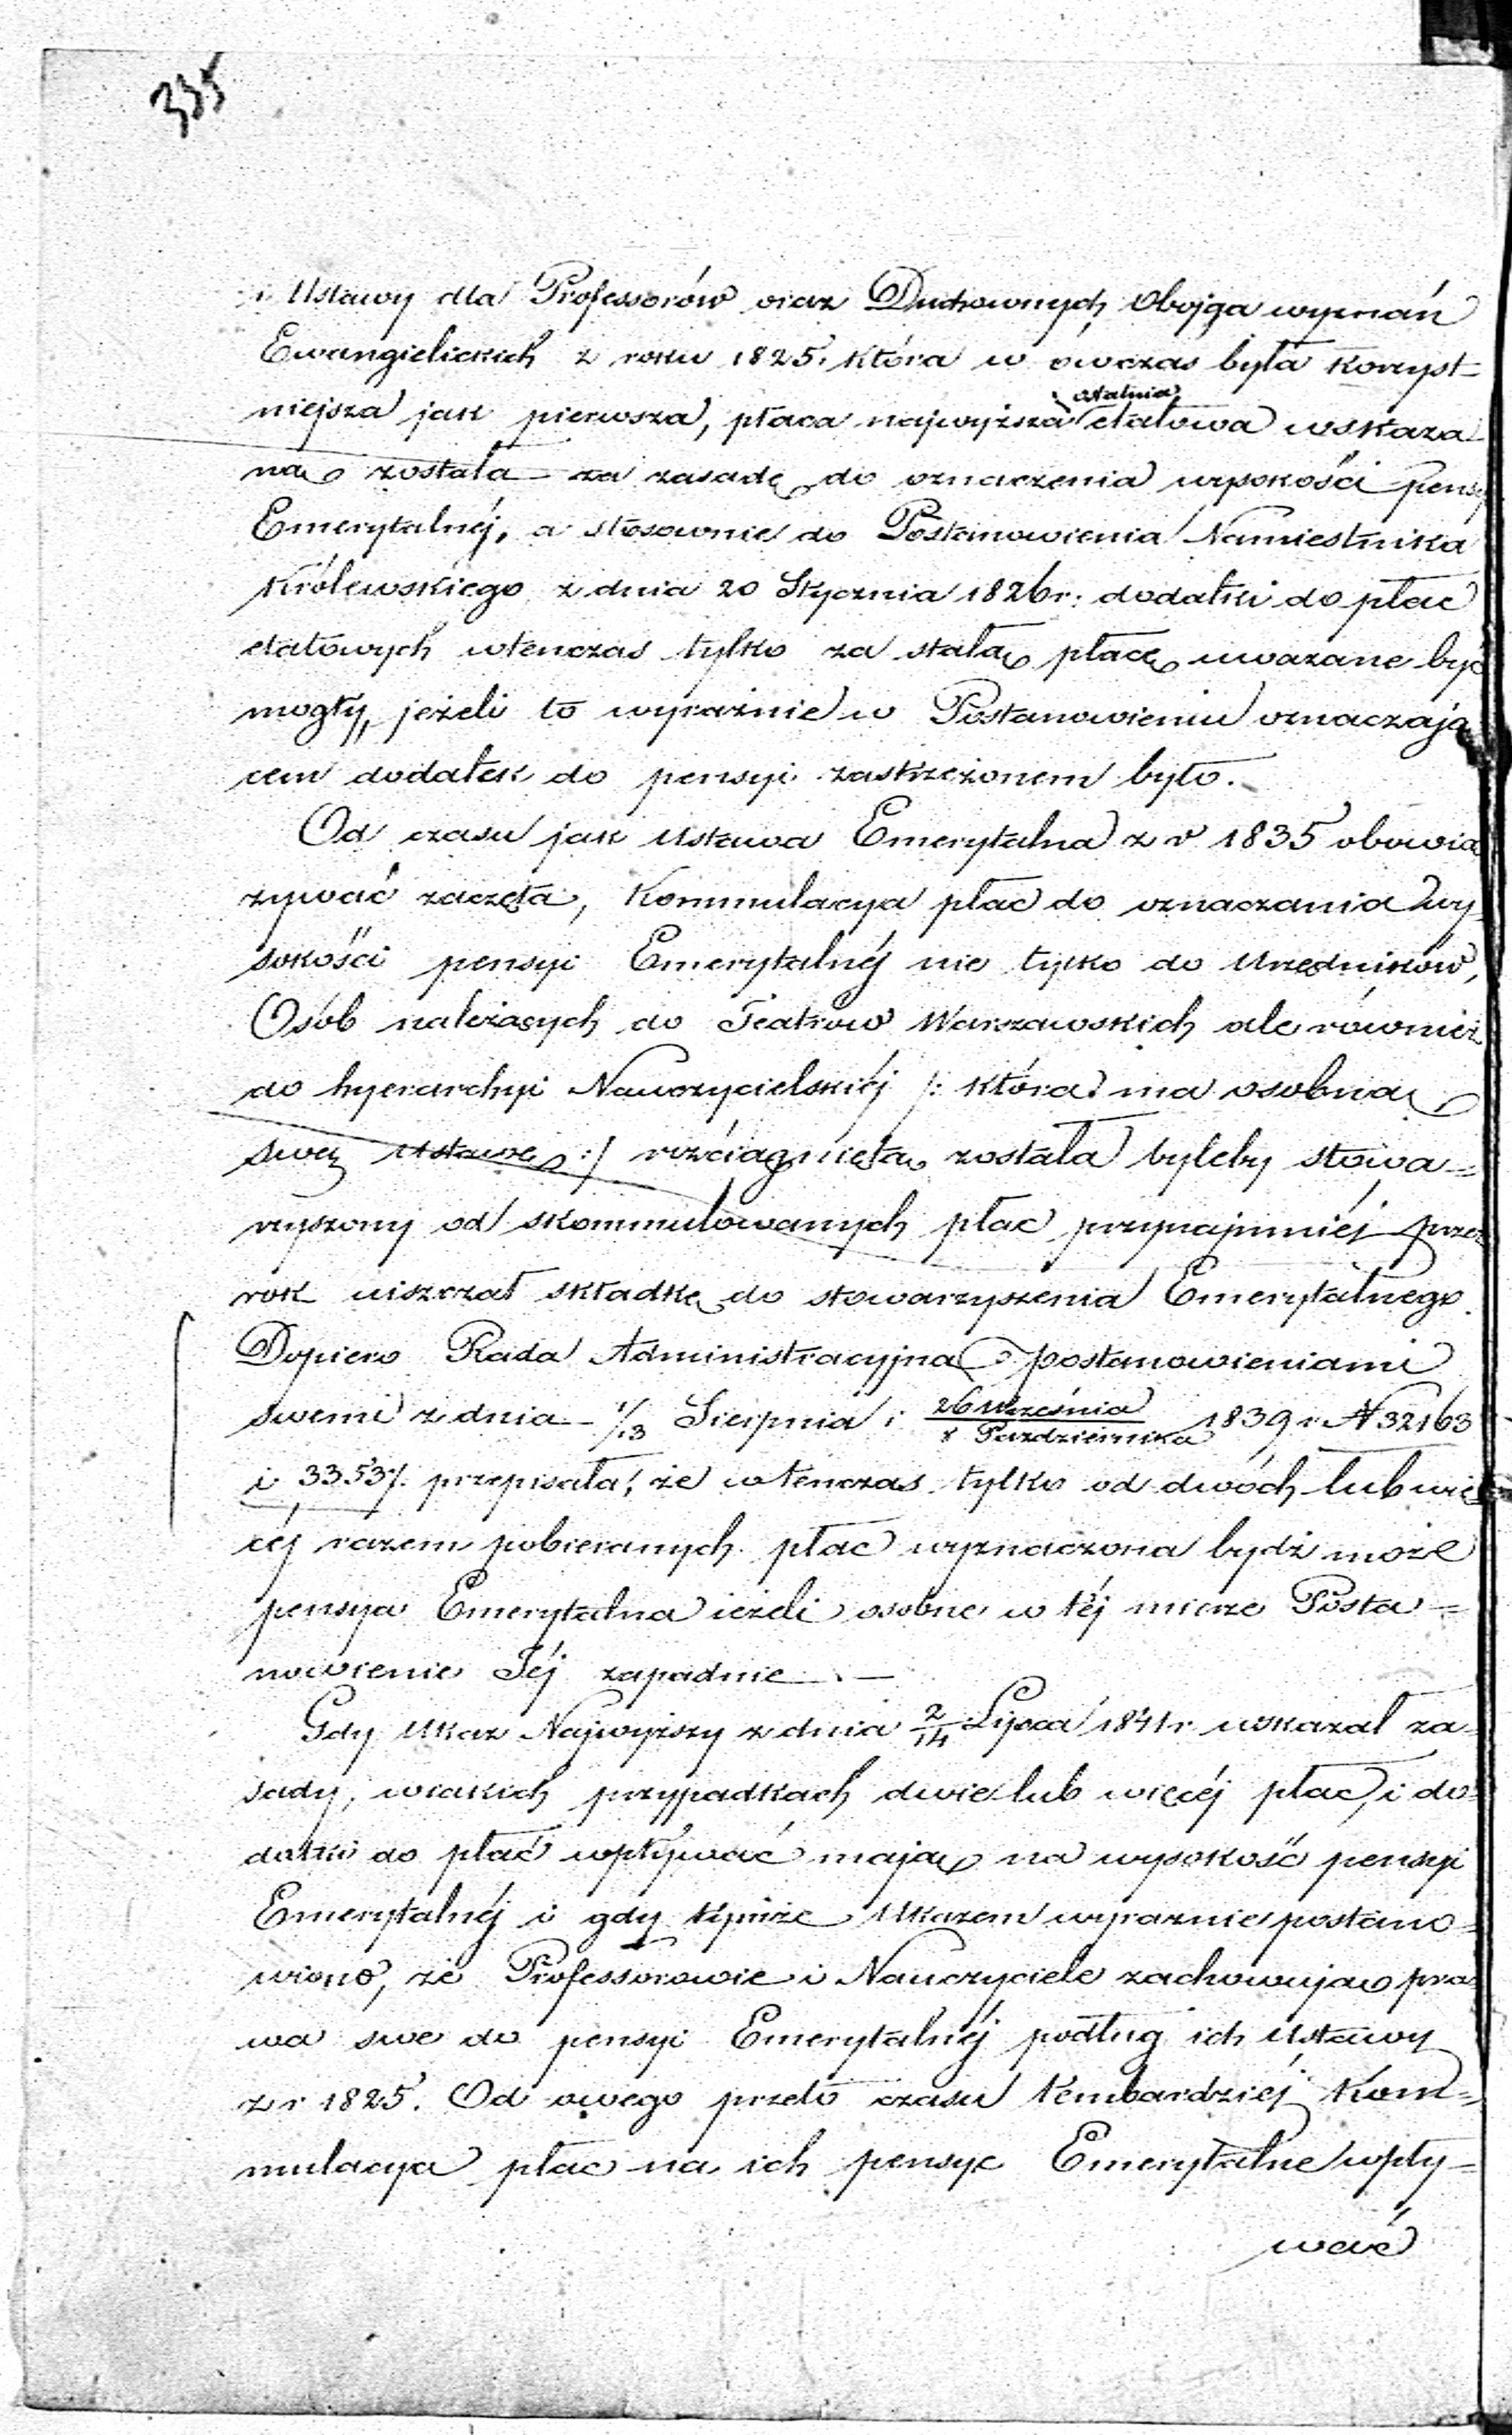 335
i Ustawy dla Professorów oraz Duchownych Obojga wyznań
Ewangielickich z roku 1825. która w ówczas była korzyst=
niejsza jak pierwsza, płaca najwyższa ostatnia etatowa wskaza
ną została za zasadę do oznaczenia wysokości pensyi
Emerytalnéj, a stosownie do Postanowienia Namiestnika
Królewskiego z dnia 20 Stycznia 1826 r: dodatki do płac
etatowych wtenczas tylko za stałą płacę uważane być
mogły, jeżeli to wyraźnie w Postanowieniu oznaczają
cem dodatek do pensyi zastrzeżonem było.
Od czasu jak Ustawa Emerytalna z r 1835 obowią
zywać zaczęła, Kommulacya płac do oznaczania wy
sokości pensyi Emerytalnéj nie tylko do Urzędników,
Osób należących do Teatrów Warszawskich ale również
do hyerarchyi Nauczycielskiéj /: która ma osobną
swą Ustawę :/ rozciągniętą została byleby stowa=
rzyszony od skommulowanych płac przynajmniéj przez
rok uiszczał składkę do stowarzyszenia Emerytalnego.
Dopiero Rada Administracyjna postanowieniami
swemi z dnia 1/13 Sierpnia i 26 Września / 8 Października 1839 r. N 32163
i 33537. przepisała, że wtenczas tylko od dwóch lub wię
céj razem pobieranych płac wyznaczona bydź może
pensya Emerytalna jeżeli osobne w téj mierze Posta=
nowienie Jéj zapadnie. —
Gdy Ukaz Najwyższy z dnia 2/14 Lipca 1841 r. wskazał za-
sady, w jakich przypadkach dwie lub więcéj płac, i do-
datki do płac wpływać mają na wysokość pensyi
Emerytalnéj i gdy tymże Ukazem wyraźnie postano=
wiono, że Professorowie i Nauczyciele zachowują pra
wa swe do pensyi Emerytalnéj podług ich Ustawy
z r 1825. Od owego przeto czasu tembardziéj Kom=
mulacya płac na ich pensye Emerytalne wpły=
wać